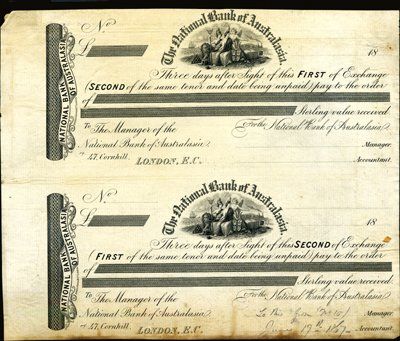 No
The National Bank of Australasia.
£
18
Three days after Sight of this FIRST of Exchange
(SECOND of the same tenor and date being unpaid) pay to the order
of
Sterling value received
To The Manager of the
For the National Bank of Australasia
National Bank of Australasia
Manager.
47, Cornhill,
LONDON, E.C.
Accountant.
NATIONAL BANK
OF AUSTRALASIA
No
The National Bank of Australasia.
£
18
Three days after Sight of this SECOND of Exchange
(FIRST of the same tenor and date being unpaid) pay to the order
of
Sterling value received
To The Manager of the
For the National Bank of Australasia
National Bank of Australasia
Manager
47, Cornhill,
LONDON, E.C.
June 19th 1867
Accountant.
NATIONAL BANK
OF AUSTRALASIA